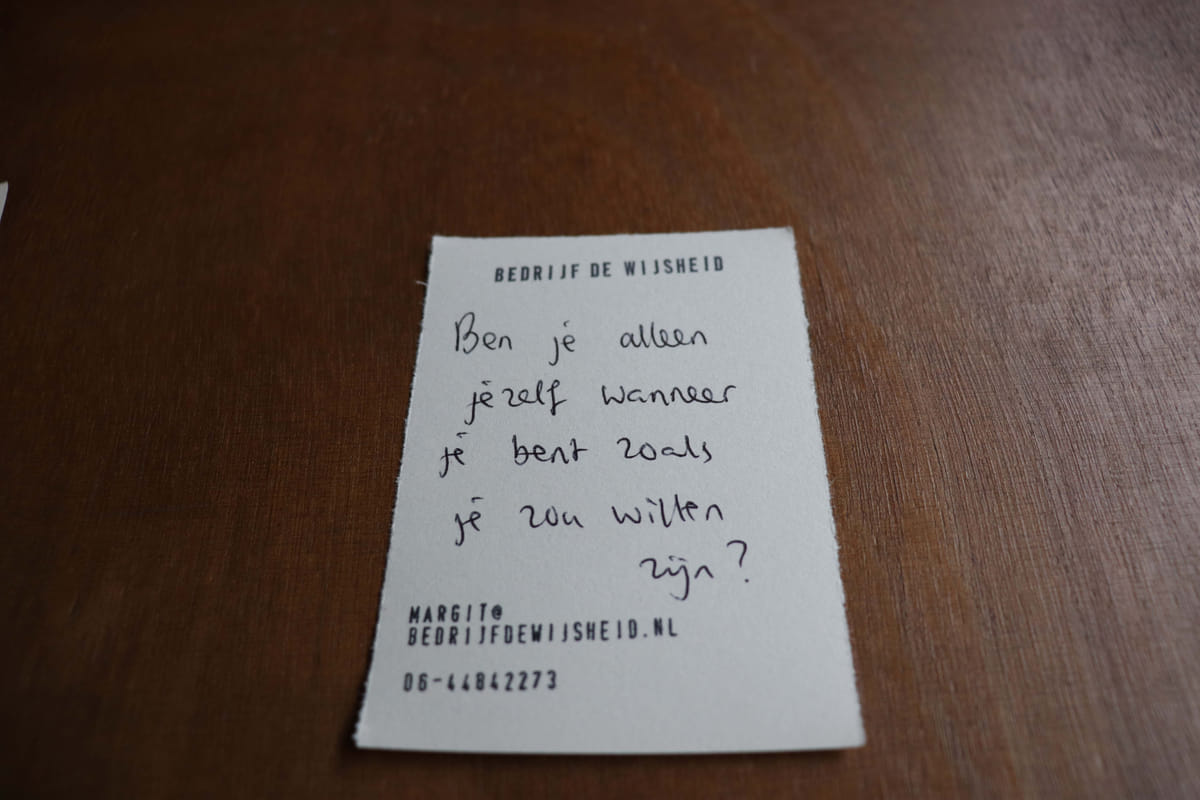 BEDRIJF DE WIJSHEID
Ben je alleen
jezelf wanneer
je bent zoals
je zou willen
zijn?
MARGIT@
BEDRIJFDEWIJSHEID.NL
06-44842273